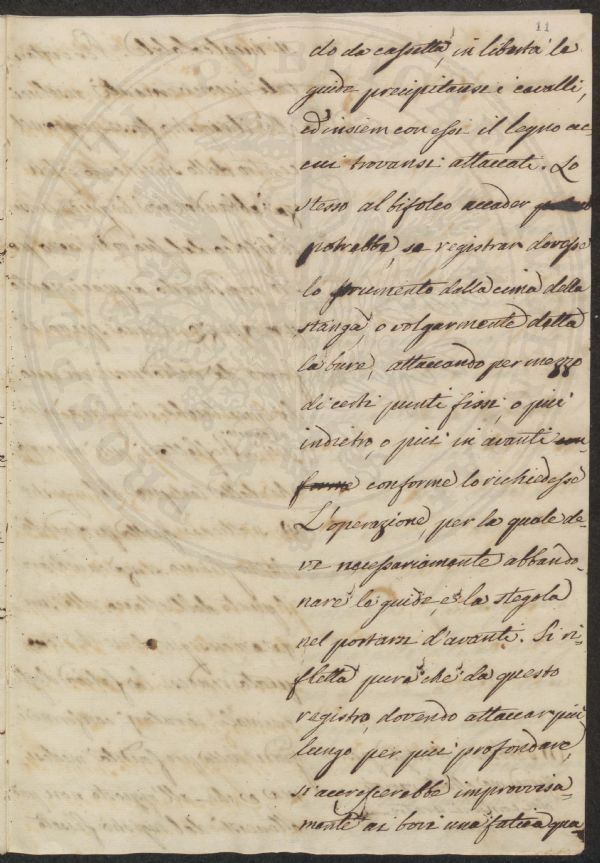 11
do da cassetta, in libertà le
guide precipitansi i cavalli,
ed insiem con essi il legno ac
cui trovansi attaccati. Lo
stesso al bifolco accader
potrebbe, se registrar dovesse
lo strumento dalla cima della
stanga, o volgarmente detta
la bure, attaccando per mezzo
di certi punti fissi, o più
indietro, o più in avanti con=
forme conforme lo richiedesse
L'operazione, per la quale de-
ve necessariamente abbando-
nare le guide, e la stegola
nel portarsi d'avanti. Si ri-
fletta pure che da questo
registro, dovendo attaccar più
lungo per più profondare,
s'accrescerebbe improvvisa-
mente ai bovi una fatica qua